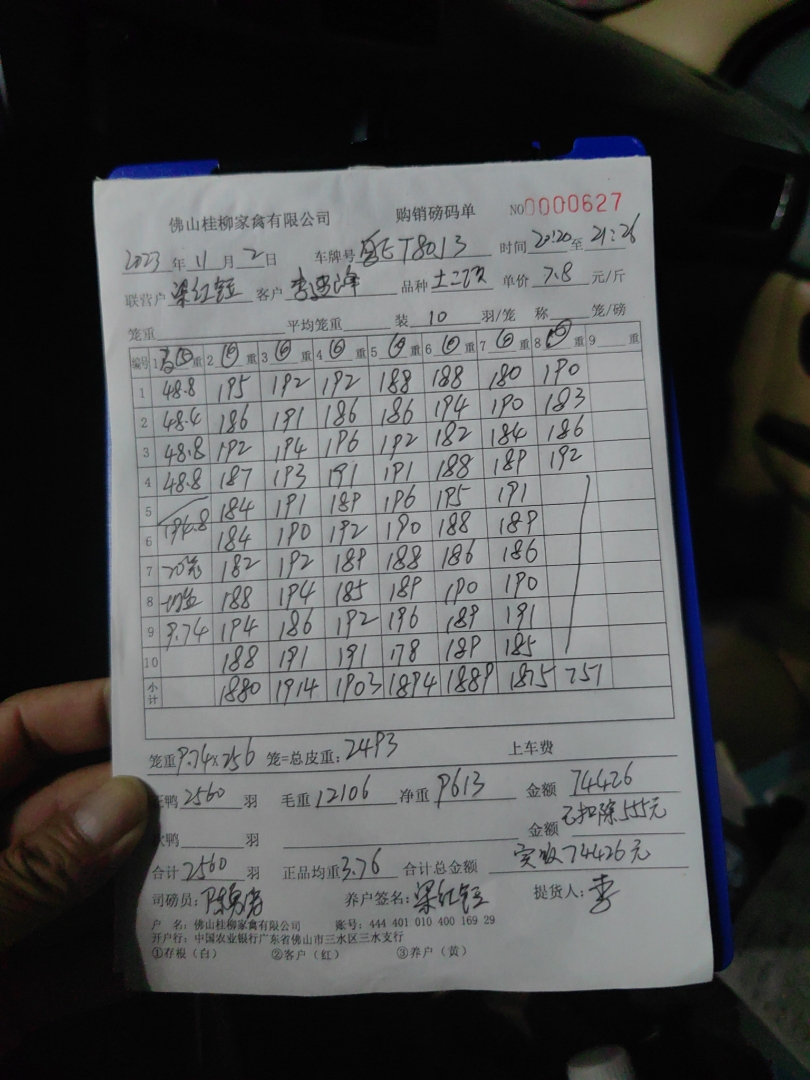 佛山桂柳家禽有限公司 购销磅码单 NO 0000627
2023 年 11 月 2 日 车牌号 粤E T8013 时间 20:20 至 21:26
联营户 梁红 客户 李 品种 土二 单价 7.8 元/斤
笼重 平均笼重 装 10 羽/笼 称 笼/磅
编号 1 重 2 ⑥ 重 3 ⑥ 重 4 ⑥ 重 5 ⑥ 重 6 ⑥ 重 7 ⑥ 重 8 ⑥ 重 9 重
1 48.8 195 192 192 188 188 180 190
2 48.4 186 191 186 186 194 190 183
3 48.8 192 194 196 192 182 184 186
4 48.8 187 193 191 191 188 189 192
5 194.8 184 191 189 196 195 191
6 184 190 192 190 188 189
7 20笼 182 192 189 188 186 186
8 188 194 185 189 190 190
9 9.74 194 186 192 196 189 191
10 188 191 191 178 189 185
小计 1880 1914 1903 1894 1889 1875 751
笼重 9.74×256 笼=总皮重: 2493 上车费
鸭 2560 羽 毛重 12106 净重 9613 金额 74426
鸭 羽 金额 已扣除555元
合计 2560 羽 正品均重 3.76 合计总金额 实收74426元
司磅员: 陈 养户签名: 梁红 提货人: 李
户 名: 佛山桂柳家禽有限公司 账号: 444 401 010 400 169 29
开户行: 中国农业银行广东省佛山市三水区三水支行
①存根（白） ②客户（红） ③养户（黄）